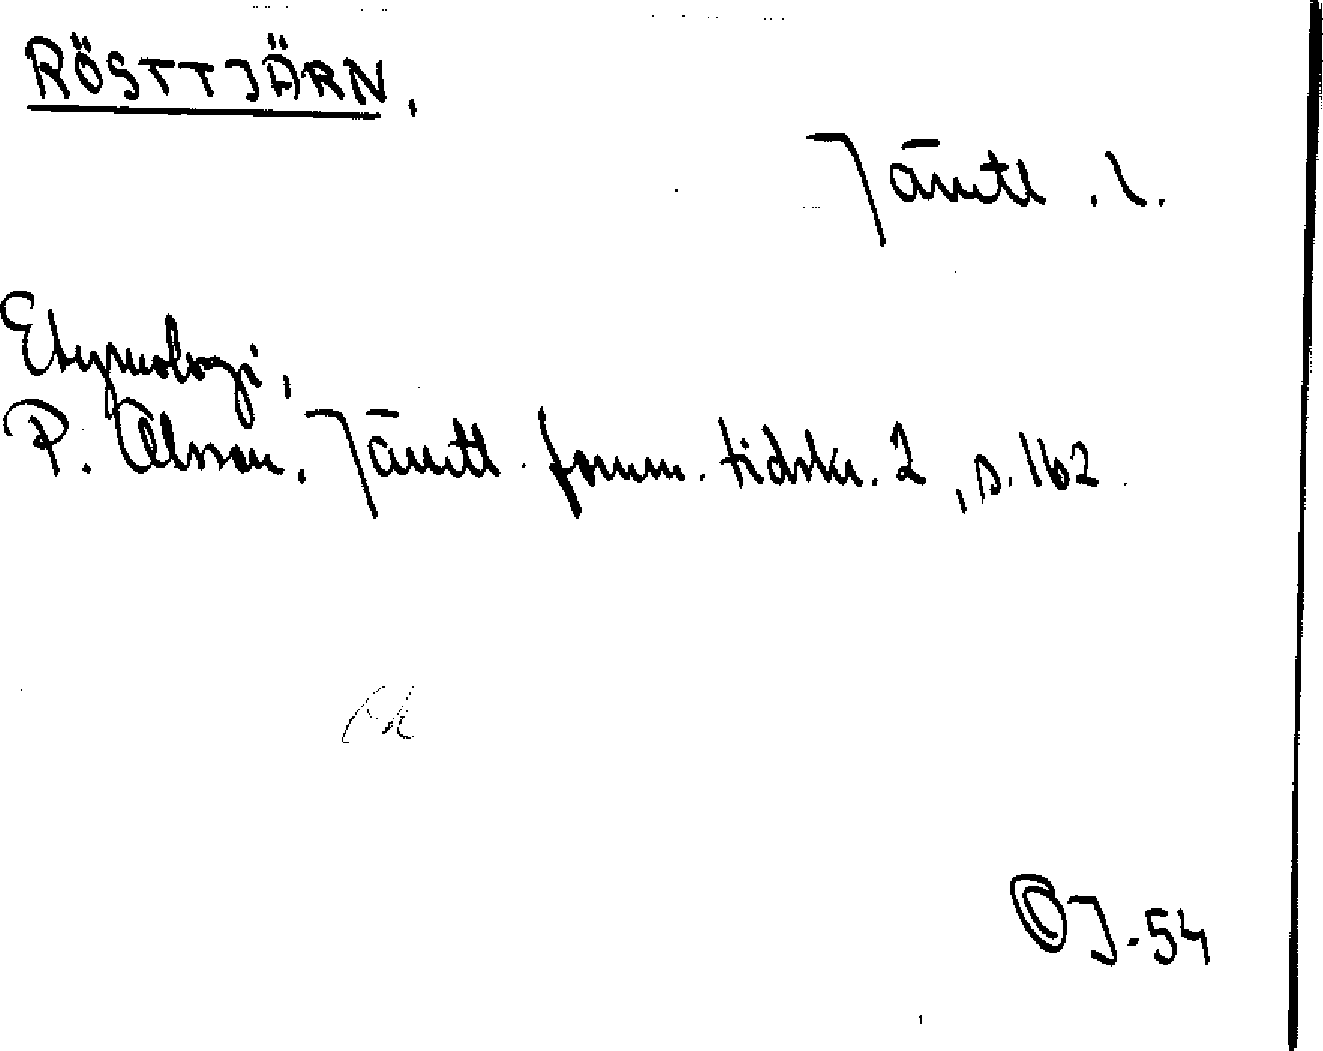 RÖSTTJÄRN.
Jämtl. l.
Etymologi,
P. Olsson. Jämtl. fornm. tidskr. 2, s. 162.
OJ-54